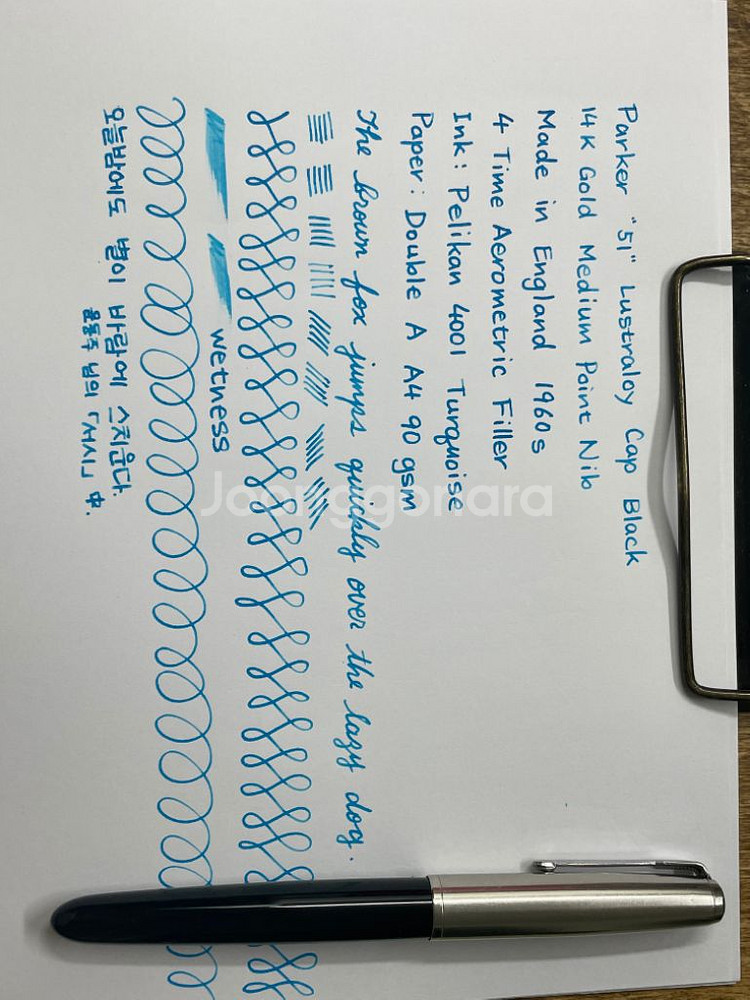 Parker "51" Lustraloy Cap Black
14K Gold Medium Point Nib
Made in England 1960s
4 Time Aerometric Filler
Ink: Pelikan 4001 Turquoise
Paper: Double A A4 90 gsm
The brown fox jumps quickly over the lazy dog.
wetness
오늘밤에도 별이 바람에 스치운다.
윤동주 님의 「서시」 中.
Joonggonara